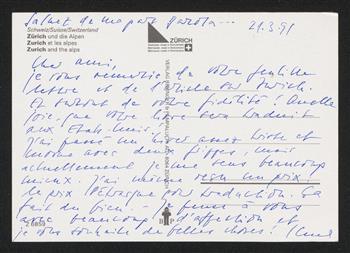 Salut de ma part
21.3.91
Schweiz/Suisse/Switzerland
Zürich und die Alpen
Zurich et les alpes
Zurich and the alps
ZÜRICH
Cher ami,
je vous remercie de votre gentille
lettre et de l'article sur Zurich.
Et surtout de votre fidélité! Quelle
joie, que votre livre sera traduit
aux Etats-Unis!
J'ai passé un hiver assez triste et
morne avec deux grippes, mais
actuellement je me sens beaucoup
mieux. J'ai même reçu un prix:
le prix Pétrarque pour traduction. Ça
fait du bien. – Je pense à vous
avec beaucoup d'affection et
je vous souhaite de belles choses!